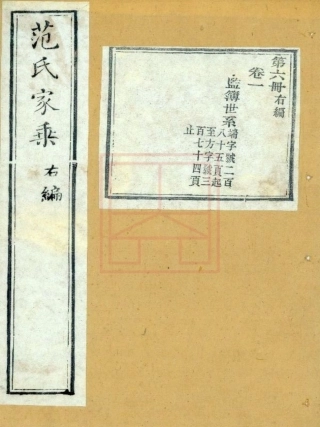 范氏家乘
右編
第六冊右編
卷一
監簿世系
字號二百
八十五頁起
至方字號三
百七十四頁
止